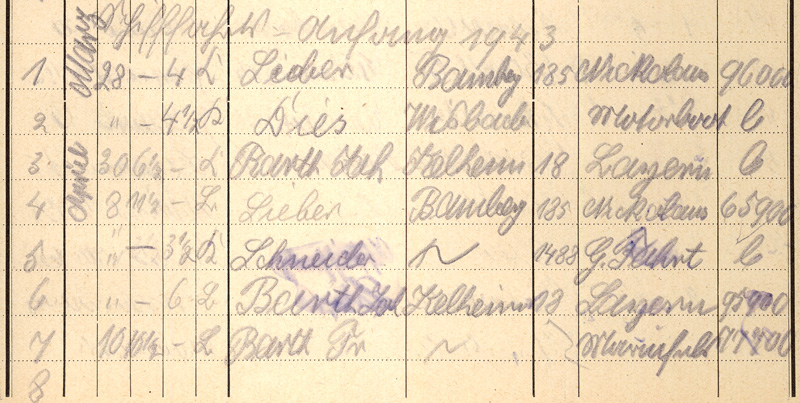 Schifffahrts - Anfang 1943
1 März 28 - 4 L Lieber Bamberg 185 Nickolaus 96000
2 " - 4½ Dies Wisbach Motorboot C
3 April 30 6½ - L Barth Joh Kelheim 18 Bayern C
4 8 11½ - L Lieber Bamberg 185 Nickolaus 65900
5 " - 3½ Schneider ~ 1488 G. Fahrt C
6 " - 6 L Barth Joh Kelheim 18 Bayern
7 10 - L Barth Fr ~
8